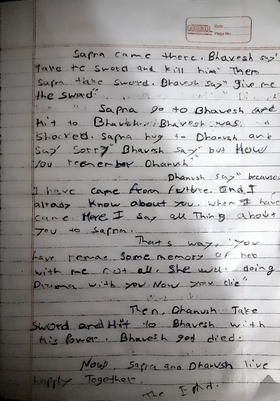 Sapna came there. Bhavesh say"
Take te sword and kill him" Then
Sapna take sword. Bhavesh say" give me
the sword".
"Sapna go to Bhavesh and
Hit to Bhavesh. Bhavesh was
shocked. Sapna hug to Dhanush and
Say Sorry" Bhavsh say" but How
you remember Dhanush"
Dhanush say" because
I have came from future. And I
already know about you. When I have
came. Here I say all Thing about
you to Sapna.
That's way, you
have remas. Some memory of her
with me not all. She will doing
Drama with you. Now you die"
Then, Dhanush Take
Sword and Hit to Bhavesh with
his power. Bhavesh got died.
Now Sapna and Dhanush live
happly Together.
The End.